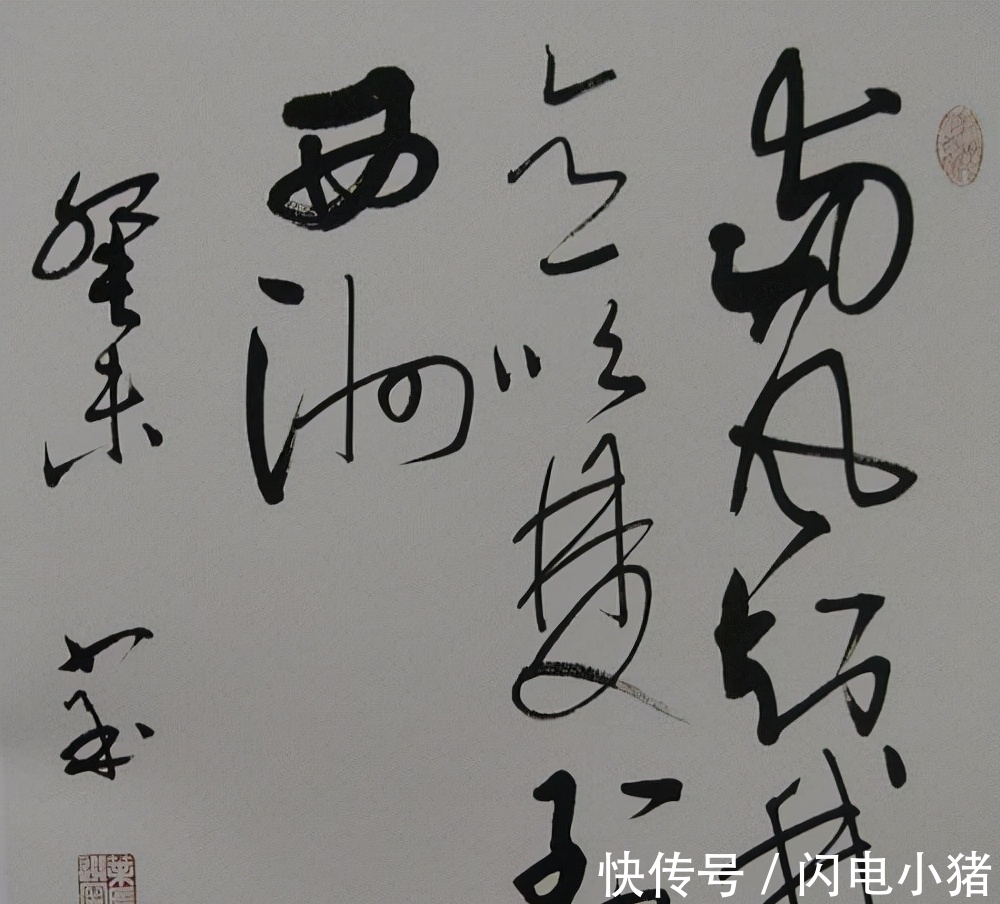 南风知我
意吹梦到
西洲
癸未
快传号 / 闪电小猪